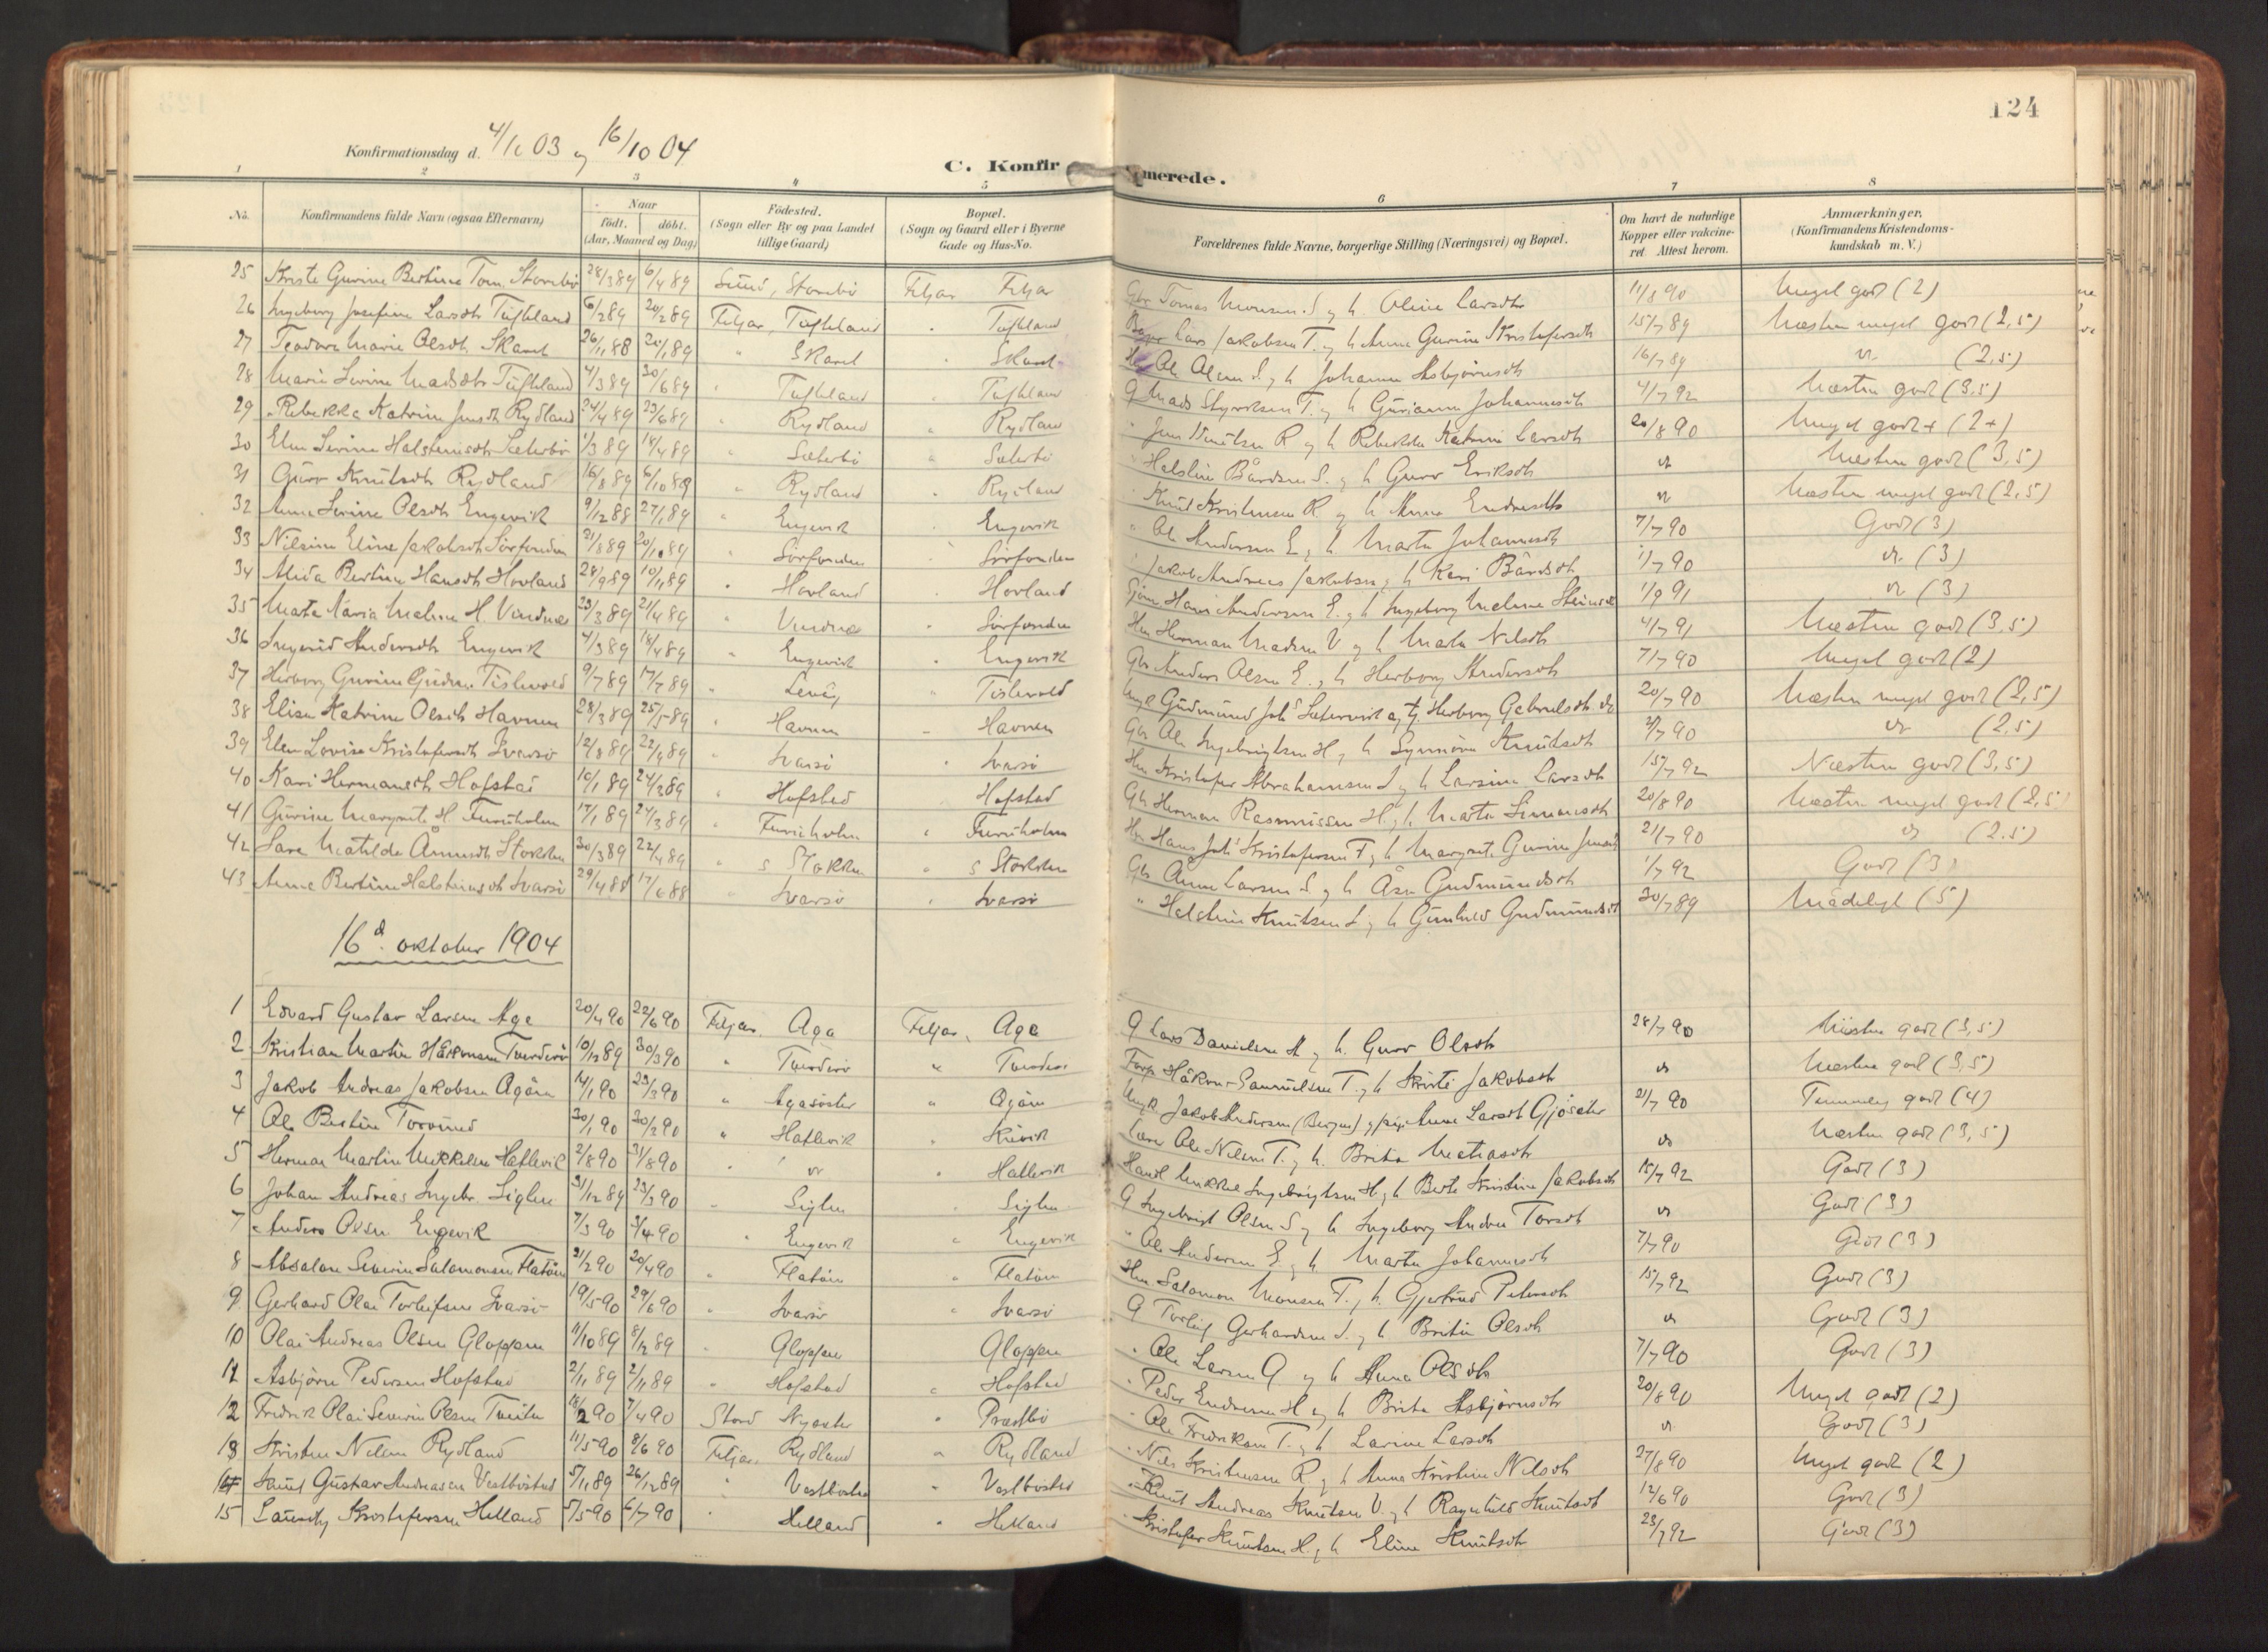 124
Konfirmationsdag d. 4/10 03 og 16/10 04
C. Konfirmerede.
1 2 3 4 5 6 7 8
No.
Konfirmandens fulde Navn (ogsaa Efternavn)
Naar
født. döbt.
(Aar, Maaned og Dag)
Födested.
(Sogn eller By og paa Landet
tillige Gaard)
Bopæl.
(Sogn og Gaard eller i Byerne
Gade og Hus-No.
Forældrenes fulde Navne, borgerlige Stilling (Næringsvei) og Bopæl.
Om havt de naturlige
Kopper eller vakcine-
ret Attest herom.
Anmærkninger.
(Konfirmandens Kristendoms-
kundskab m. V.)
25 Gurine Bertine Tom. Storebö 28/3 89 6/4 89 Sund, Storebö Fitjar Fitjar Gbr Tomas Monsen S. og h. Oline Larsdtr 11/8 90 Meget godt (2)
26 Ingeborg Josefine Larsdtr Tufteland 6/2 89 20/2 89 Fitjar, Tufteland " Tufteland Lars Jakobsen T. og h Anna Gurine Kristofersdt 15/7 89 Næsten meget godt (2,5)
27 Teodora Marie Olesdt. 26/11 88 20/1 89 " " Ole Olsen S. og h Johanna Asbjörnsdt 16/7 89 (2,5)
28 Marie Severine Madsdtr Tufteland 4/3 89 30/6 89 " Tufteland " Tufteland G Mads Styrksen T. og h Gurianna Johannesdt 4/7 92 Næsten godt (3,5)
29 Rebekka Katrine Jensdt Rydland 24/4 89 23/6 89 " Rydland " Rydland " Jens Knutsen R og h Rebekka Katrine Larsdt 20/8 90 Meget godt+ (2+)
30 Elen Severine Halsteinsdt Sæterbö 1/3 89 18/4 89 " Sæterbö " Sæterbö " Halstein Bårdsen S. og h Guro Eriksdt Næsten godt (3,5)
31 Guro Knutsdt Rydland 16/8 89 6/10 89 " Rydland " Rydland " Knut Kristensen R. og h Anna Endresdtr Næsten meget godt (2,5)
32 Anna Severine Olesdt Engevik 9/12 88 27/1 89 " Engevik " Engevik " Ole Andersen E. og h Marta Johannesdt 7/7 90 Godt (3)
33 Nilsine Eline Jakobsdt Sörfonden 21/8 89 20/10 89 " Sörfonden " Sörfonden " Jakob Andreas Jakobsen og h Kari Bårdsdt 1/7 90 (3)
34 Alida Bertine Hansdt Hovland 28/9 89 10/11 89 " Hovland " Hovland Hans Andersen E. og h Ingeborg Malene 1/9 91 (3)
35 Marta Maria Malene H. Vindnes 23/3 89 21/4 89 " Vindnes " Sörfonden Hm Herman Madsen V og h Marta Nilsdt 4/7 91 Næsten godt (3,5)
36 Ingerid Andersdt Engevik 4/3 89 18/4 89 " Engevik " Engevik Gbr Anders Olsen E. og h Herborg Andersdt 7/7 90 Meget godt (2)
37 Herborg Gurine Gudm. Tislevold 9/7 89 17/7 89 " " Tislevold Gudmund Joh Sætervik og Herborg Gabrielsdt 20/7 90 Næsten meget godt (2,5)
38 Elisa Katrine Olesdt Havnen 28/3 89 25/5 89 " Havnen " Havnen Gbr Ole Ingebrigtsen H. og h Synnöve Knutsdt 7/7 90 (2,5)
39 Elen Lovise Kristofersdt Ivarsö 12/3 89 22/4 89 " Ivarsö " Ivarsö Hm Kristofer Abrahamsen I og h Larsine Larsdt 15/7 92 Næsten godt (3,5)
40 Kari Hermansdt Hofstad 10/1 89 24/3 89 " Hofstad " Hofstad Gbr Herman Rasmussen H. og h Marta Simonsdt 20/8 90 Næsten meget godt (2,5
41 Gurine Margrete H Fureholm 17/1 89 24/3 89 " Fureholm " Fureholm Hm Hans Joh Kristofersen F og h Margrete Gurine Jensdt 21/7 90 (2.5)
42 Sara Matilda Ånensdt Stokken 30/3 89 22/4 89 " s Stokken " s Stokken Gbr Ånen Larsen S. og h Åsa Gudmundsdt 1/7 92 Godt (3)
43 Anna Bertine Halsteinsdt Ivarsö 29/4 88 17/6 88 " Ivarsö " Ivarsö " Halstein Knutsen I. og h Gunhild Gudmundsdt 30/7 89 Mådeligt (5)
16d. oktober 1904
1 Edvard Gustav Larsen Aga 20/4 90 22/6 90 Fitjar, Aga Fitjar, Aga G Lars Danielsen A og h. Guro Olsdt 28/7 90 Næsten godt (3,5)
2 Kristian Martin Håkonsen Tverderö 10/12 89 30/3 90 " Tverderö " Håkon Samuelsen T. og h Kirsti Jakobsdt Næsten godt (3,5)
3 Jakob Andreas Jakobsen Agåen 14/1 90 23/3 90 " Agasöster " Agåen Ungk. Jakob Andersen (Bergen) og pige Anna Larsdt Gjösæter 21/7 90 Temmelig godt (4)
4 Ole Bertin Torvund 30/1 90 30/2 90 " Hatlevik " Lærer Ole Nilsen T. og h. Brita Matiasdt Næsten godt (3,5)
5 Herman Martin Mikkelsen Hatlevik 2/8 90 31/8 90 " " Hatlevik Mikkel Ingebrigtsen H. og h Berta Kristine Jakobsdt 15/7 92 Godt (3)
6 Johan Andreas Ingebr. Siglen 31/12 89 23/3 90 " Siglen " Siglen G Ingebrigt Olsen S og h Ingeborg Andrea Torsdt Godt (3)
7 Anders Olsen Engevik 7/3 90 /4 90 " Engevik " Engevik " Ole Andersen E. og h Marta Johannesdt 7/7 90 Godt (3)
8 Absalon Severin Salamonsen Flatöen 21/2 90 20/4 90 " Flatöen " Flatöen Hm Salamon Monsen F. og h. Gjertrud Petersdt 15/7 92 Godt (3)
9 Gerhard Olai Torleifsen Ivarsö 19/5 90 29/6 90 " Ivarsö " Ivarsö G Torleif Gerhardsen I. og h Brita Olesdt Godt (3)
10 Olai Andreas Olsen Gloppen 11/10 89 8/12 89 " Gloppen Gloppen " Ole Larsen G og h Anna Olesdt 7/7 90 Godt (3)
11 Asbjörn Pedersen Hofstad 2/11 89 2/11 89 " Hofstad " Hofstad " Peder Endresen H og h Brita Asbjörnsdt 20/8 90 Meget godt (2)
12 Fredrik Olai Severin Olsen Tveita 18/2 90 7/4 90 Stord Nysæter " Præstbö " Ole Fredriksen T. og h Larine Larsdt Godt (3)
13 Kristen Nilsen Rydland 11/5 90 8/6 90 Fitjar Rydland " Rydland " Nils Kristensen R. og h Anna Kristine Nilsdt 27/8 90 Meget godt (2)
14 Knut Gustav Andreasen Vestbostad 5/11 89 26/12 89 " Vestbostad " Vestbostad " Knut Andreas Knutsen V. og h Ragnhild Knutsdt 12/6 90 Godt (3)
15 Lauritz Kristofersen Helland 5/5 90 6/7 90 " Helland " Helland " Kristofer Knutsen H. og h Eline Knutsdt 23/7 92 Godt (3)